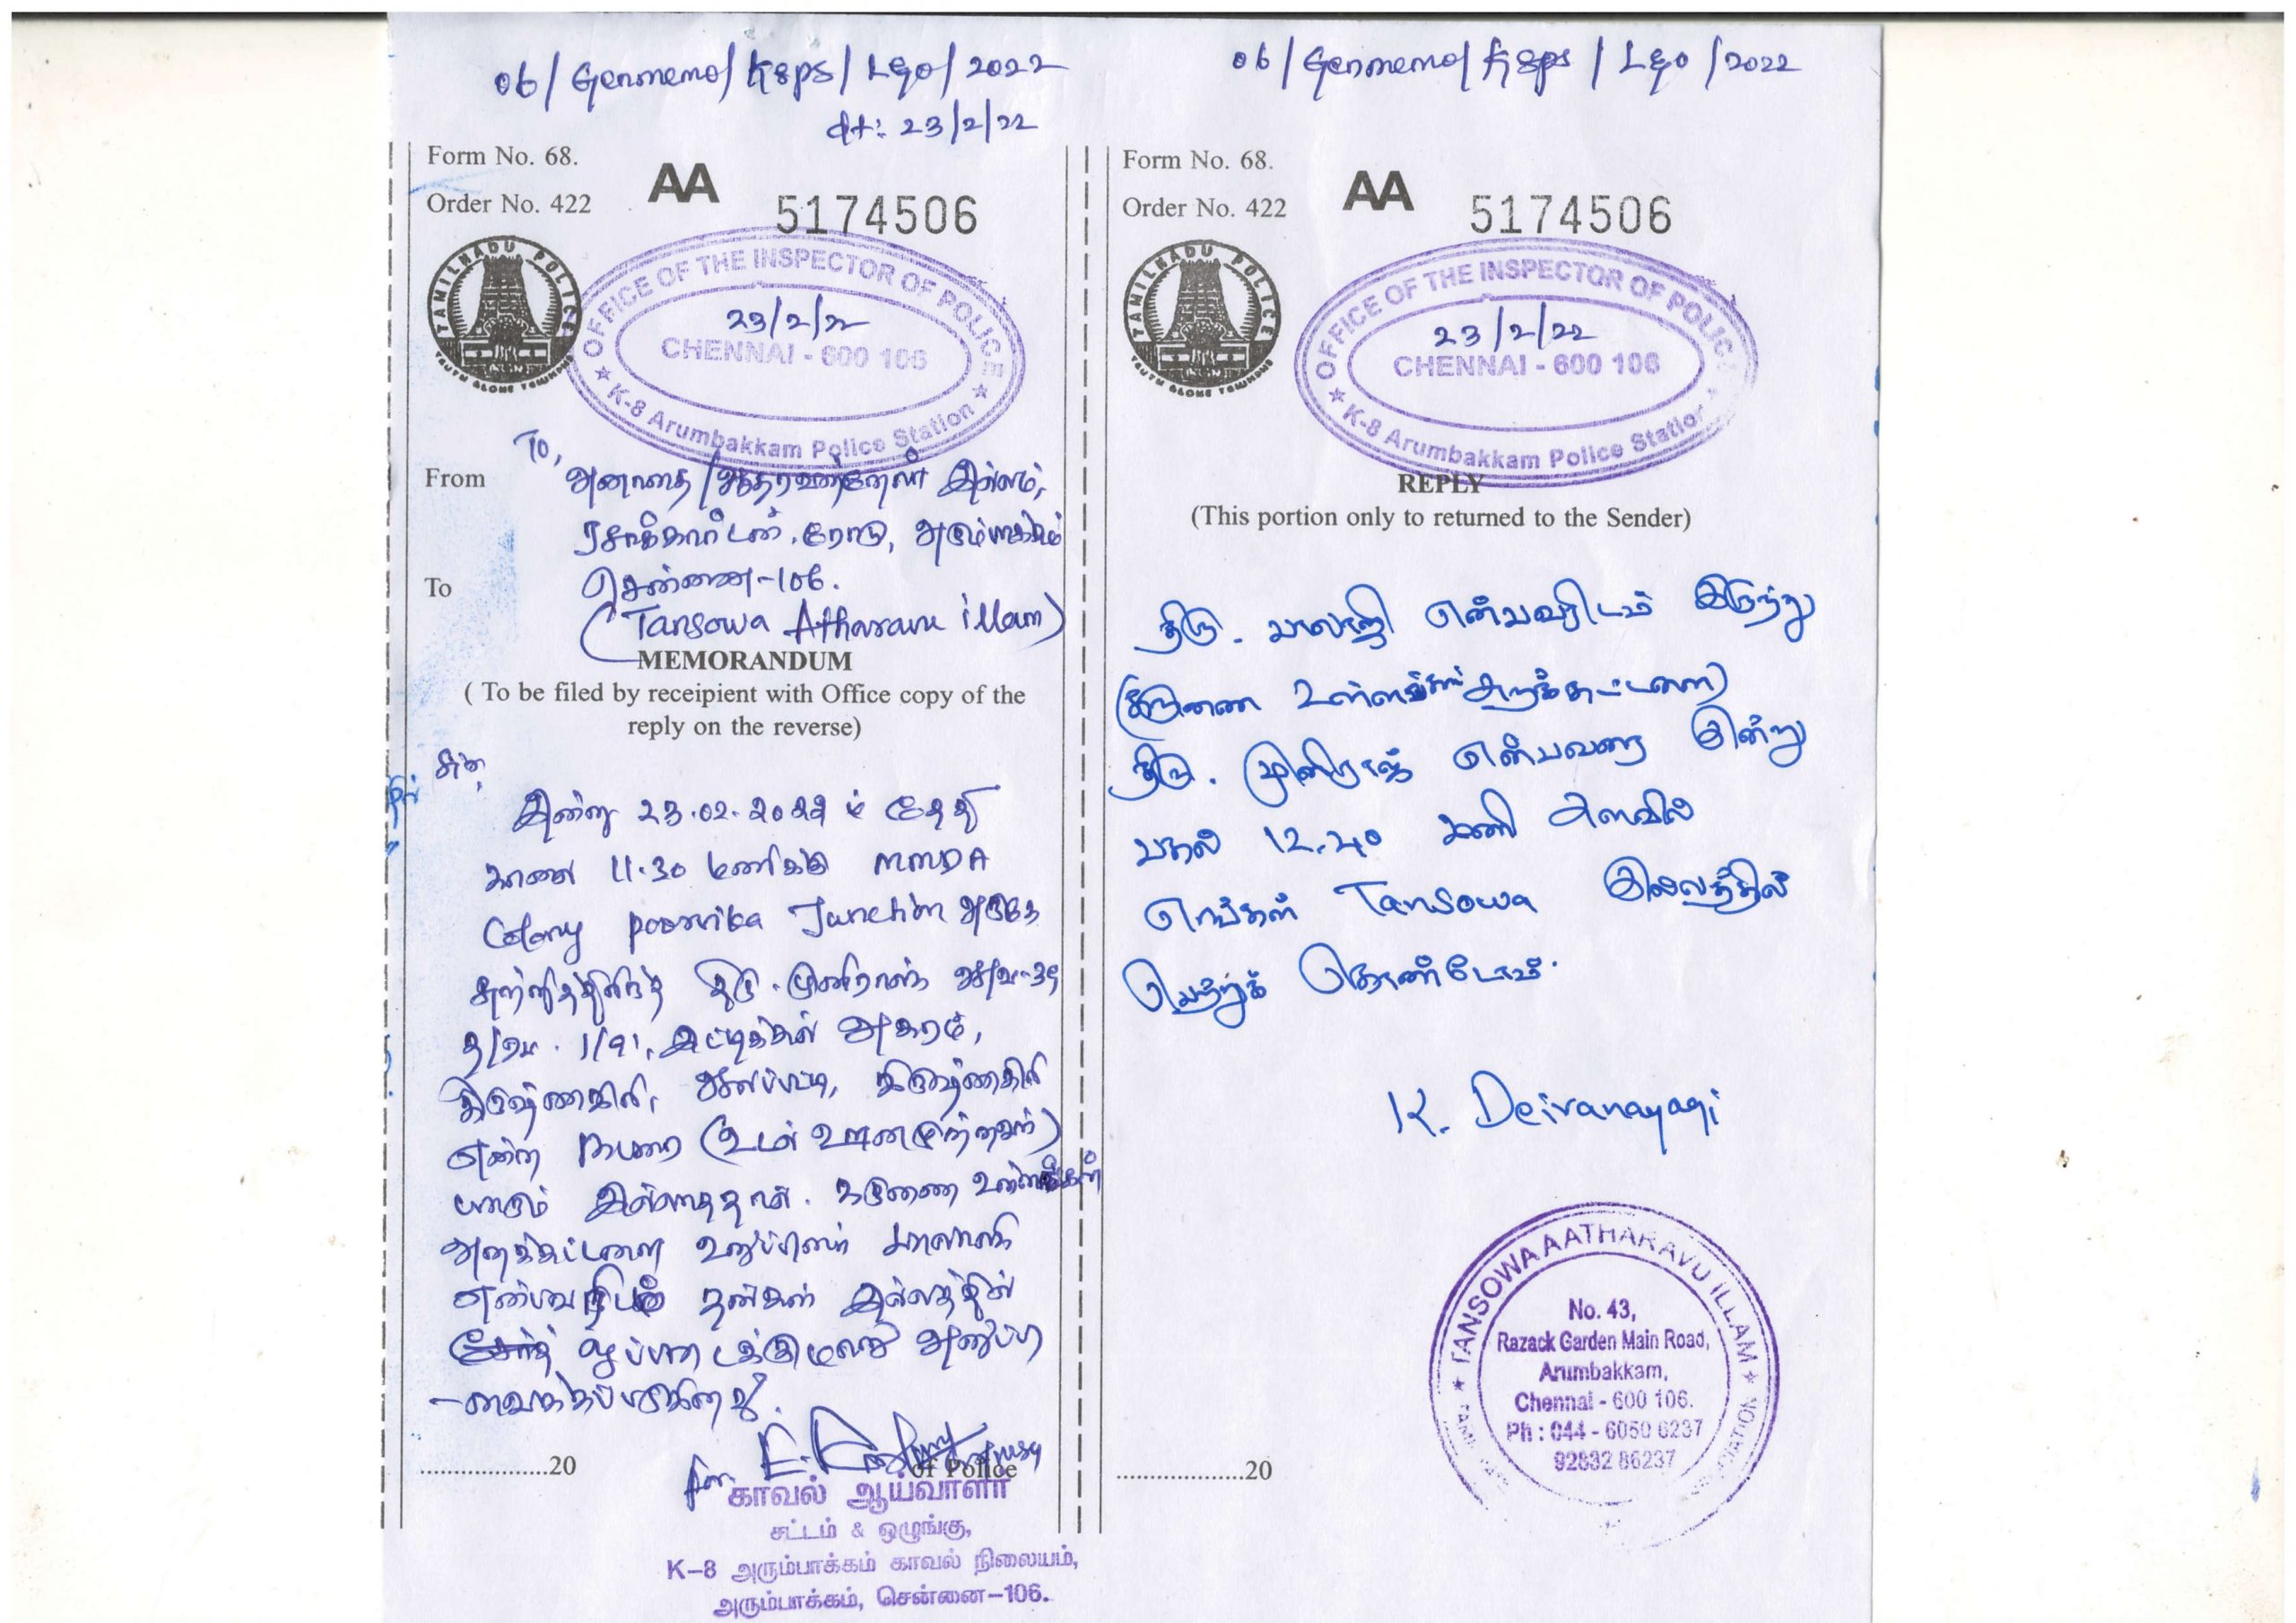 06/Genmemo/K8ps/L&o/2022
dt: 23/2/22
Form No. 68.
Order No. 422
AA
5174506
TAMILNADU POLICE
TRUTH ALONE TRIUMPHS
OFFICE OF THE INSPECTOR OF POLICE
23/2/22
CHENNAI - 600 106
K-8 Arumbakkam Police Station
To,
From
அனாதை/ஆதரவற்றோர் இல்லம்,
ரசாக்கார்டன் ரோடு, அரும்பாக்கம்
To
சென்னை-106.
(Tansowa Atharavu illam)
MEMORANDUM
( To be filed by receipient with Office copy of the
reply on the reverse)
இன்று 23.02.2022 ம் தேதி
காலை 11.30 மணிக்கு MMDA
Colony poorvika Junction அருகே
சுற்றித்திரிந்த திரு. முனிராஜ்
த/பெ. அகரம்,
கிருஷ்ணகிரி, கிருஷ்ணகிரி
என்ற நபரை (உடல் ஊனமுற்றவர்)
யாரும் இல்லாததால். கருணை உள்ளங்கள்
அறக்கட்டளை உறுப்பினர் பாலாஜி
என்பவரிடம் தங்கள் இல்லத்தில்
ஒப்படைக்குமாறு அனுப்பி
வைக்கப்படுகிறது.
..................20
for
of Police
காவல் ஆய்வாளர்
சட்டம் & ஒழுங்கு,
K–8 அரும்பாக்கம் காவல் நிலையம்,
அரும்பாக்கம், சென்னை–106.
06/Genmemo/K8ps/L&o/2022
Form No. 68.
Order No. 422
AA
5174506
TAMILNADU POLICE
TRUTH ALONE TRIUMPHS
OFFICE OF THE INSPECTOR OF POLICE
23/2/22
CHENNAI - 600 106
K-8 Arumbakkam Police Station
REPLY
(This portion only to returned to the Sender)
திரு. பாலாஜி என்பவரிடம் இருந்து
(கருணை உள்ளங்கள் அறக்கட்டளை)
திரு. முனிராஜ் என்பவரை இன்று
பகல் 12.40 மணி அளவில்
எங்கள் Tansowa இல்லத்தில்
பெற்றுக் கொண்டோம்.
K. Deivanayagi
TANSOWA AATHARAVU ILLAM
No. 43,
Razack Garden Main Road,
Arumbakkam,
Chennai - 600 106.
Ph : 044 - 6050 6237
92832 86237
..................20